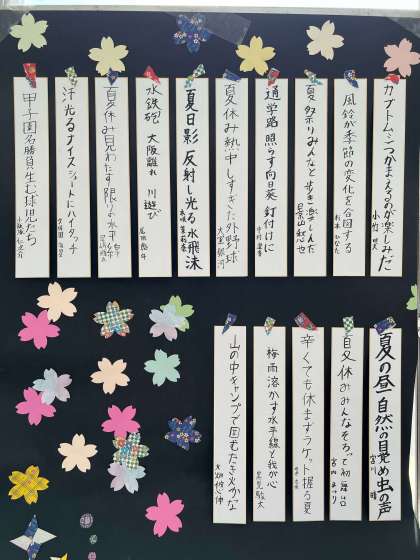 カブトムシつかまえるのが楽しみだ
風鈴が季節の変化を合図する
夏祭りみんなと歩き楽しんだ
通学路照らす向日葵釘付けに
夏休み熱中しすぎた外野球
夏日影 反射し光る 水飛沫
水鉄砲 大阪離れ 川遊び
夏休み見わたす限りの水平線
汗光るナイスショートにハイタッチ
甲子園名勝負生む球児たち
夏の昼自然の目覚め虫の声
宮川 晴
夏休みみんなそろって初舞台
辛くても休まずラケット握る夏
梅雨溶かす水平線と我が心
山の中キャンプで囲むたき火かな